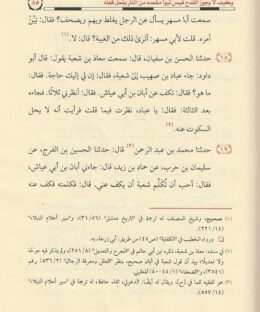 وكيف لا يجوز القدح فيمن تبوأ مقعده من النار بفعل فعله ٨٥
سمعت أبا مسهر يسأل عن الرجل يغلط ويهم ويصحف؟ فقال: بَيِّنْ
أمره. قلت لأبي مسهر: أترى ذلك من الغيبة؟ قال: لا.(١)
(١٨) حدثنا الحسن بن سفيان، قال: سمعت معاذ بن شعبة يقول: قال أبو
داود: جاء عباد بن صهيب إلى شعبة، فقال: إن لي إليك حاجة. فقال:
ما هو؟ فقال: تكف عن أبان بن أبي عياش. فقال: أنظرني ثلاثة. ثم جاء
بعد الثالثة، فقال: يا عباد، نظرت فيما قلت فرأيت أنه لا يحل
السكوت عنه.(٢)
(١٩) حدثنا محمد بن عبد الرحمن(٣) قال: حدثنا الحسين بن الفرج، عن
سليمان بن حرب، عن حماد بن زيد، قال: جاءني أبان بن أبي عياش،
فقال: أحب أن تُكلِّم شعبة أن يكف عني. قال: فكلمته فكف عنه
(١) صحيح، وشيخ المصنف له ترجمة في «تاريخ دمشق» (٣١/٥٦)، و«سير أعلام النبلاء»
(٢٢١/١٤).
ورواه الخطيب في «الكفاية» (ص٤٥) من طريق أبي زرعة، به.
(٢) في سنده: معاذ بن شعبة، ذكره ابن أبي حاتم في «الجرح والتعديل» (٢٥١/٨)، ولم يذكر فيه جرحًا